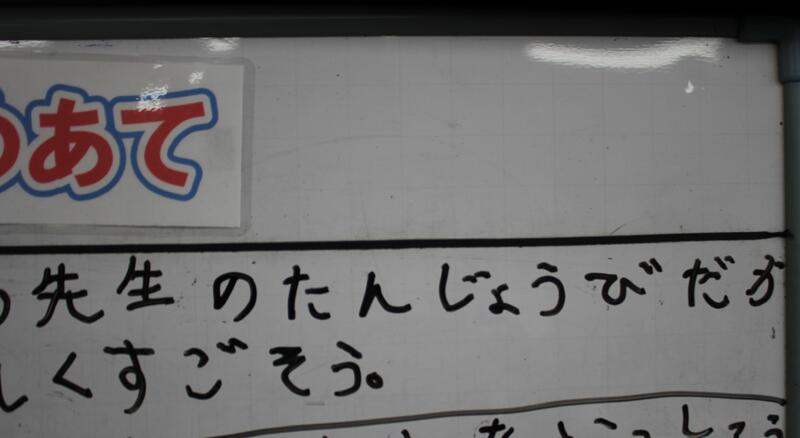 めあて
先生のたんじょうびだか
しくすごそう。